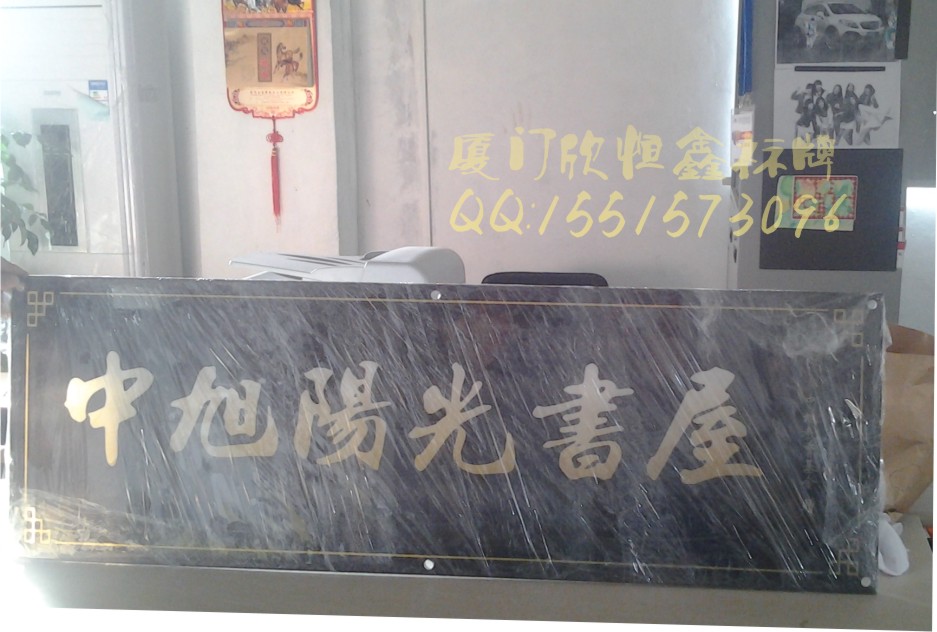 厦门欣恒鑫标牌
QQ:1551573096
中旭陽光書屋